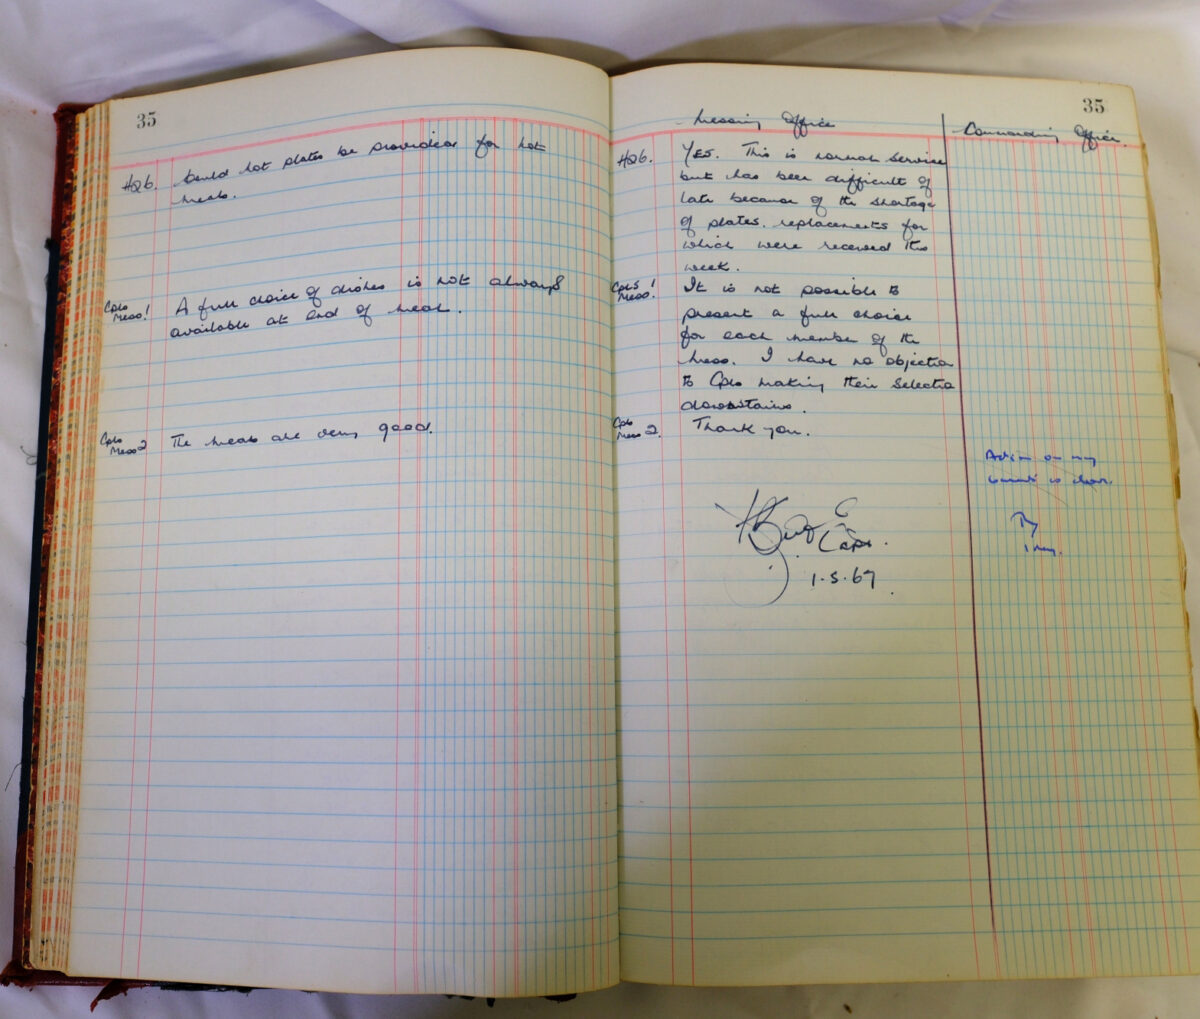 35
HQ6. Could hot plates be provided for hot
meals.
Cpls
Mess 1 A full choice of dishes is not always
available at end of meal.
Cpls
Mess 2 The meals are very good.
35
Messing Office
Commanding Office.
HQ6. YES. This is normal service
but has been difficult of
late because of the shortage
of plates. replacements for
which were received this
week.
Cpls
Mess 1 It is not possible to
present a full choice
for each member of the
mess. I have no objection
to Cpls making their selection
downstairs.
Cpls
Mess 2. Thank you.
Capt.
1.5.67
Action on my
is
1 May.